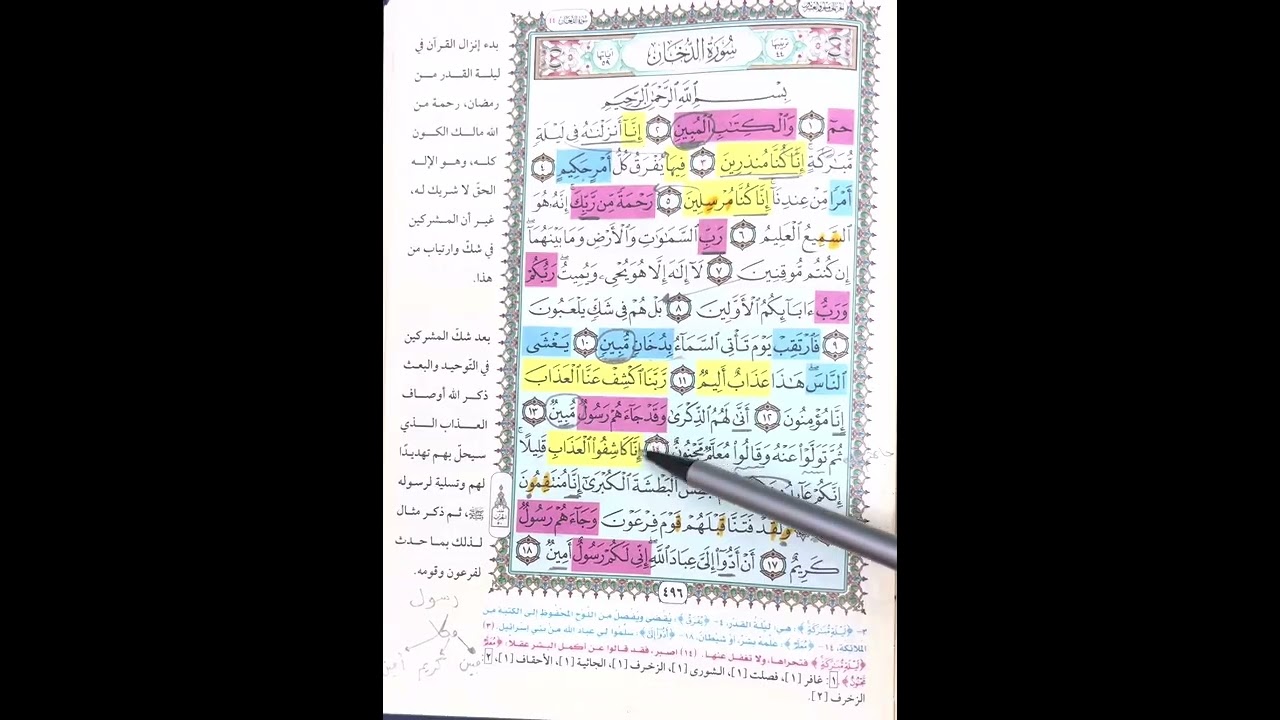 سُورَةُ الدُّخَانِ
ترتيبها ٤٤
آياتها ٥٩
بِسْمِ ٱللَّهِ ٱلرَّحْمَٰنِ ٱلرَّحِيمِ
حمٓ ١ وَٱلْكِتَٰبِ ٱلْمُبِينِ ٢ إِنَّآ أَنزَلْنَٰهُ فِى لَيْلَةٍ
مُّبَٰرَكَةٍ إِنَّا كُنَّا مُنذِرِينَ ٣ فِيهَا يُفْرَقُ كُلُّ أَمْرٍ حَكِيمٍ ٤
أَمْرًا مِّنْ عِندِنَآ إِنَّا كُنَّا مُرْسِلِينَ ٥ رَحْمَةً مِّن رَّبِّكَ إِنَّهُۥ هُوَ
ٱلسَّمِيعُ ٱلْعَلِيمُ ٦ رَبِّ ٱلسَّمَٰوَٰتِ وَٱلْأَرْضِ وَمَا بَيْنَهُمَآ
إِن كُنتُم مُّوقِنِينَ ٧ لَآ إِلَٰهَ إِلَّا هُوَ يُحْىِۦ وَيُمِيتُ رَبُّكُمْ
وَرَبُّ ءَابَآئِكُمُ ٱلْأَوَّلِينَ ٨ بَلْ هُمْ فِى شَكٍّ يَلْعَبُونَ
٩ فَٱرْتَقِبْ يَوْمَ تَأْتِى ٱلسَّمَآءُ بِدُخَانٍ مُّبِينٍ ١٠ يَغْشَى
ٱلنَّاسَ هَٰذَا عَذَابٌ أَلِيمٌ ١١ رَّبَّنَا ٱكْشِفْ عَنَّا ٱلْعَذَابَ
إِنَّا مُؤْمِنُونَ ١٢ أَنَّىٰ لَهُمُ ٱلذِّكْرَىٰ وَقَدْ جَآءَهُمْ رَسُولٌ مُّبِينٌ ١٣
ثُمَّ تَوَلَّوْا۟ عَنْهُ وَقَالُوا۟ مُعَلَّمٌ مَّجْنُونٌ ١٤ إِنَّا كَاشِفُوا۟ ٱلْعَذَابِ قَلِيلًا
إِنَّكُمْ ٱلْبَطْشَةَ ٱلْكُبْرَىٰٓ إِنَّا مُنتَقِمُونَ
وَلَقَدْ فَتَنَّا قَبْلَهُمْ قَوْمَ فِرْعَوْنَ وَجَآءَهُمْ رَسُولٌ
كَرِيمٌ ١٧ أَنْ أَدُّوٓا۟ إِلَىَّ عِبَادَ ٱللَّهِ إِنِّى لَكُمْ رَسُولٌ أَمِينٌ ١٨
٤٩٦
بدء إنزال القرآن في
ليلة القدر من
رمضان، رحمة من
الله مالك الكون
كله، وهو الإله
الحقّ لا شريك له،
غير أن المشركين
في شكّ وارتياب من
هذا.
بعد شكّ المشركين
في التّوحيد والبعث
ذكر الله أوصاف
العذاب الذي
سيحلّ بهم تهديدًا
لهم وتسلية لرسوله
ﷺ، ثم ذكر مثال
لذلك بما حدث
لفرعون وقومه.
رسول
مبين كريم أمين
٣- ﴿لَيْلَةٍ مُّبَٰرَكَةٍ﴾: هي: ليلة القدر، ٤- ﴿يُفْرَقُ﴾: يُقضى ويُفصل من اللوح المحفوظ إلى الكتبة من
الملائكة، ١٤- ﴿مُعَلَّمٌ﴾: علّمه بشر، أو شيطان، ١٨- ﴿أَدُّوٓا۟ إِلَىَّ﴾: سلّموا لي عباد الله من بني إسرائيل. (٣)
﴿لَيْلَةٍ مُّبَٰرَكَةٍ﴾ فتحراها، ولا تغفل عنها. (١٤) اصبر، فقد قالوا عن أكمل البشر عقلًا: ﴿مُعَلَّمٌ
مَّجْنُونٌ﴾. ١: غافر [١]، فصلت [١]، الشورى [١]، الزخرف [١]، الجاثية [١]، الأحقاف [١]، ٢:
الزخرف [٢].